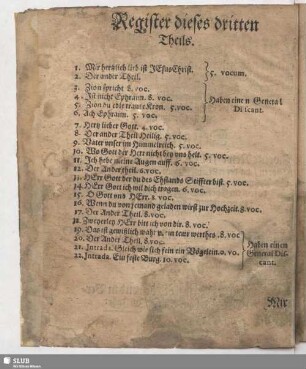 Register dieses dritten
Theils.
1. Mir hertzlich lieb ist JEsus Christ.
2. Der ander Theil.
5. vocum.
3. Zion spricht 8. voc.
4. Ist nicht Ephraim. 8. voc.
5. Zion du edle traute Kron. 5. voc.
6. Ach Ephraim. 5. voc.
Haben einen General
Discant.
7. Hertz lieber Gott. 4. voc.
8. Der ander Theil Heilig. 5. voc.
9. Vater unser im Himmelreich. 5. voc.
10. Wo Gott der Herr nicht bey uns helt. 5. voc.
11. Ich hebe meine Augen auff. 6. voc.
12. Der Ander theil. 6. voc.
13. HErr Gott der du des Ehstands Stiffter bist. 5. voc.
14. HErr Gott ich wil dich
15. O Gott und HErr. 8. voc.
16. Wenn du von jemand geladen wirst zur Hochzeit. 8. voc.
17. Der Ander Theil. 8. voc.
18. Zweyerley HErr bitt ich von dir. 8. voc.
19. Das ist gewißlich wahr werthes. 8. voc
20. Der Ander Theil. 8. voc
21. Intrada. Gleich wie sich fein ein Vögelein. voc.
22. Intrada. Ein feste Burg. 10. voc.
Haben einen
General Dis-
cant.
Mir
SLUB
Wir führen Wissen.